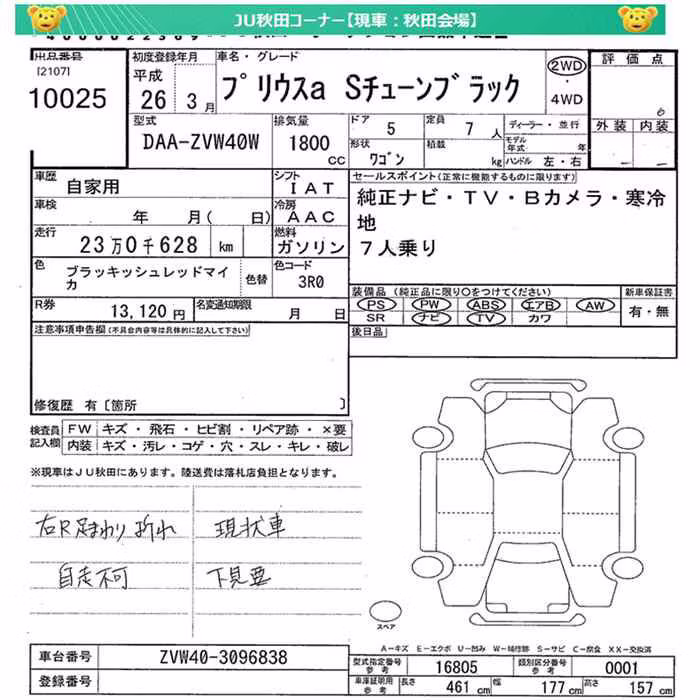 JU秋田コーナー【現車：秋田会場】
出品番号
[2107]
10025
初度登録年月
平成
26 3月
車名・グレード
プリウスa Sチューンブラック
2WD
・
4WD
評価点
6
外装 内装
型式
DAA-ZVW40W
排気量
1800
cc
ドア 5
定員 7 人
ディーラー・並行
形状 ワゴン
積載 kg
モデル年式 年
ハンドル 左・右
車歴
自家用
シフト
IAT
車検
年 月( 日)
冷房
AAC
走行
23万0千628 km
燃料
ガソリン
色
ブラッキッシュレッドマイカ
色替
色コード
3R0
R券
13,120 円
名変通知期限
月 日
セールスポイント(正常に機能するものに限ります)
純正ナビ・TV・Bカメラ・寒冷
地
7人乗り
装備品 (純正品に限り○をつけてください)
新車保証書
PS PW ABS エアB AW
SR ナビ TV カワ
有・無
注意事項申告欄(不具合内容等は具体的に記入して下さい)
後日品
修復歴 有〔箇所 〕
検査員記入欄
FW キズ・飛石・ヒビ割・リペア跡・×要
内装 キズ・汚レ・コゲ・穴・スレ・キレ・破レ
※現車はJU秋田にあります。陸送費は落札店負担となります。
右R足まわり折れ 現状車
自走不可 下見要
スペア
A-キズ E-エクボ U-凹み W-補修跡 S-サビ C-腐食 XX-交換済
車台番号
ZVW40-3096838
登録番号
型式指定番号
参考
16805
類別区分番号
参考
0001
車庫証明用
参考
長さ 461 cm 幅 177 cm 高さ 157 cm